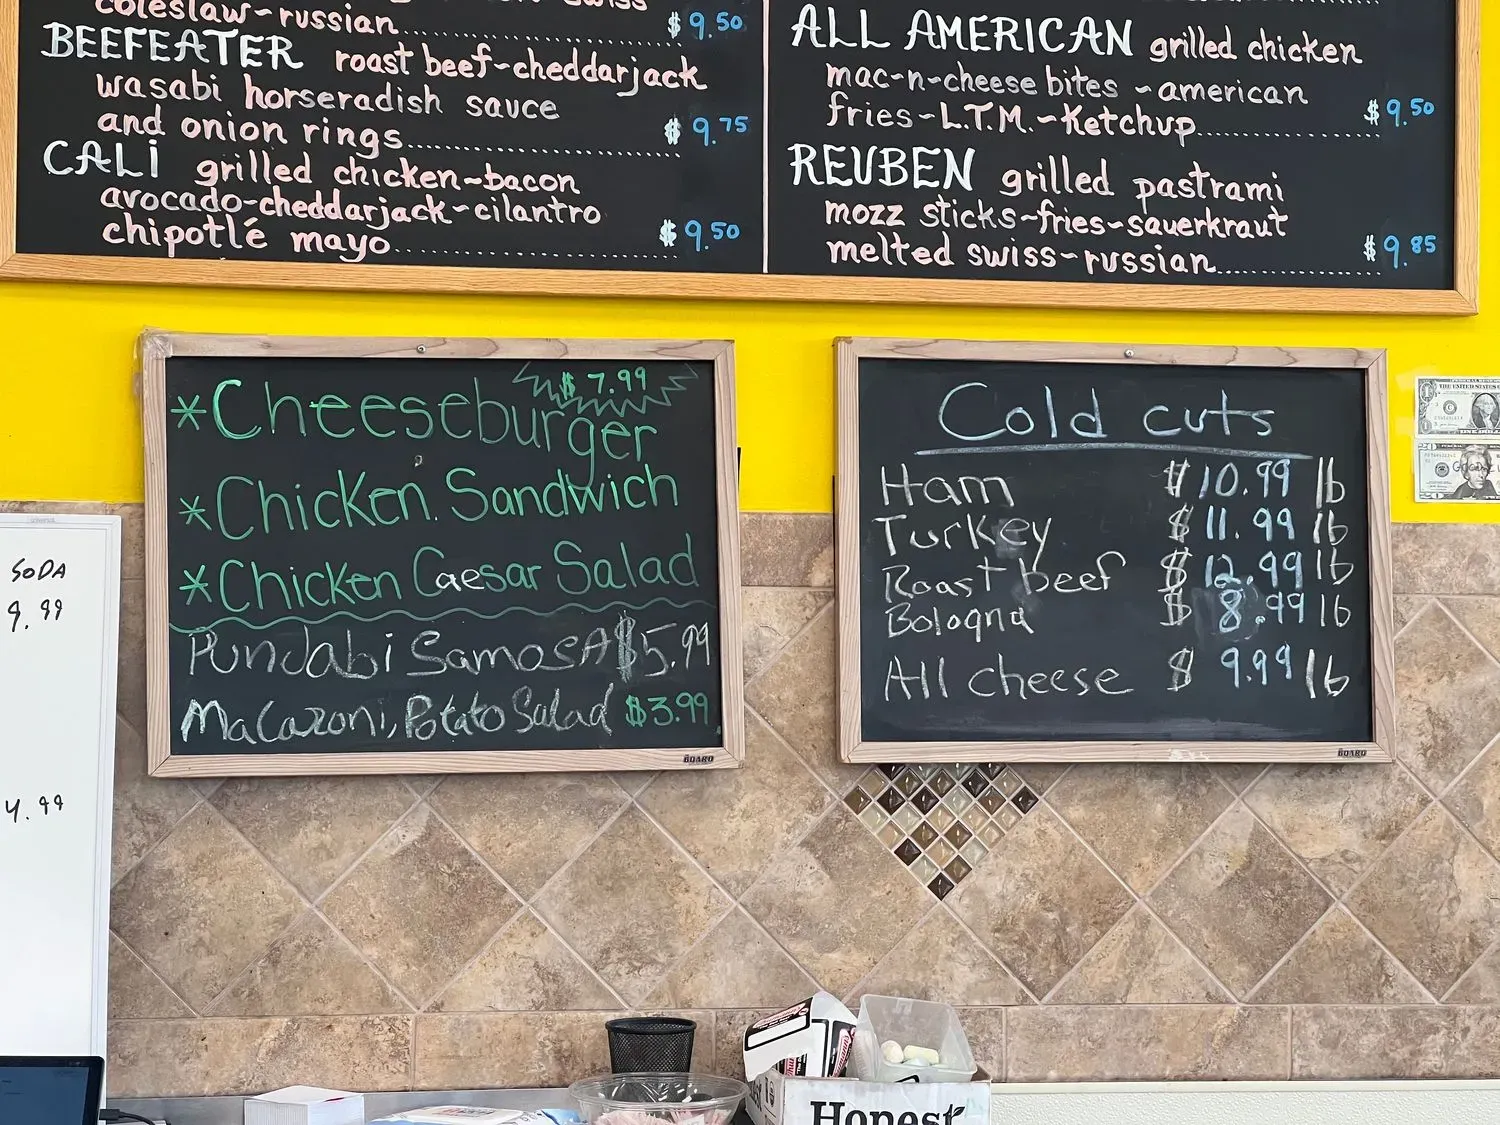 coleslaw~russian........ $9.50
BEEFEATER roast beef~cheddarjack
wasabi horseradish sauce
and onion rings........ $9.75
CALI grilled chicken~bacon
avocado~cheddarjack~cilantro
chipotlé mayo........ $9.50
ALL AMERICAN grilled chicken
mac~n~cheese bites ~american
fries~L.T.M.~Ketchup........ $9.50
REUBEN grilled pastrami
mozz sticks~fries~sauerkraut
melted swiss~russian........ $9.85
$7.99
*Cheeseburger
*Chicken Sandwich
*Chicken Caesar Salad
Pundabi SamosA $5.99
Macaroni, Potato Salad $3.99
BOARD
Cold cuts
Ham $10.99 lb
Turkey $11.99 lb
Roast beef $12.99 lb
Bologna $8.99 lb
All cheese $9.99 lb
BOARD
SODA
9.99
4.99
Honest